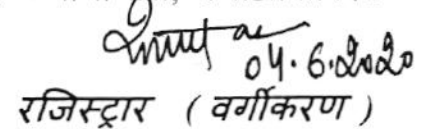 04.6.2020
रजिस्ट्रार ( वर्गीकरण )